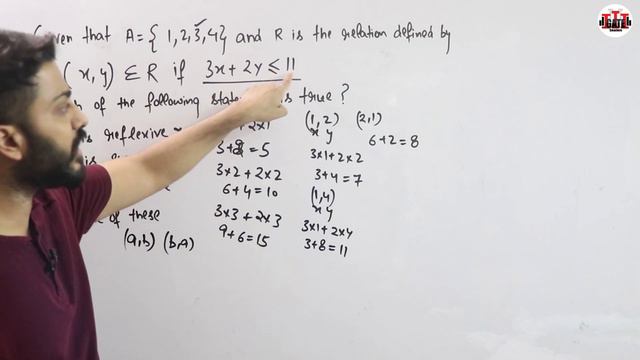 Given that A = { 1, 2, 3, 4 } and R is the relation defined by
(x, y) ∈ R if 3x + 2y ≤ 11
of the following is true ?
is reflexive
2×1
= 5
3×2 + 2×2
6 + 4 = 10
3×3 + 2×3
9 + 6 = 15
(1, 2) (2, 1)
x y
6 + 2 = 8
3×1 + 2×2
3 + 4 = 7
(1, 4)
x y
3×1 + 2×4
3 + 8 = 11
of these
(a, b) (b, a)
GATE